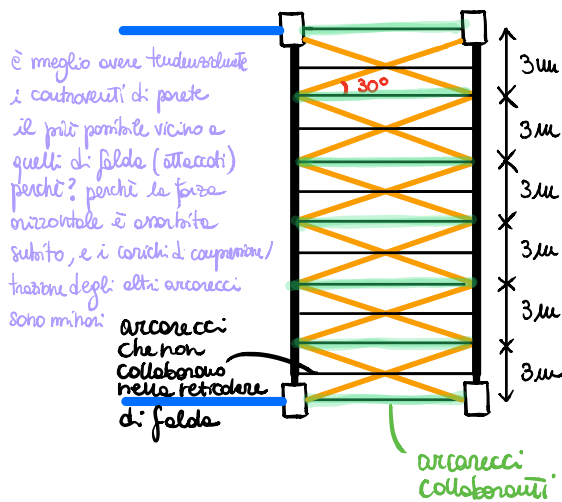 è meglio avere tendenzialmente
i controventi di parete
il più possibile vicino a
quelli di falda (attaccati)
perchè? perchè la forza
orizzontale è assorbita
subito, e i carichi di compressione/
trazione degli altri arcarecci
sono minori
arcarecci
che non
collaborano
nella reticolare
di falda
30°
3m
3m
3m
3m
3m
3m
arcarecci
collaboranti